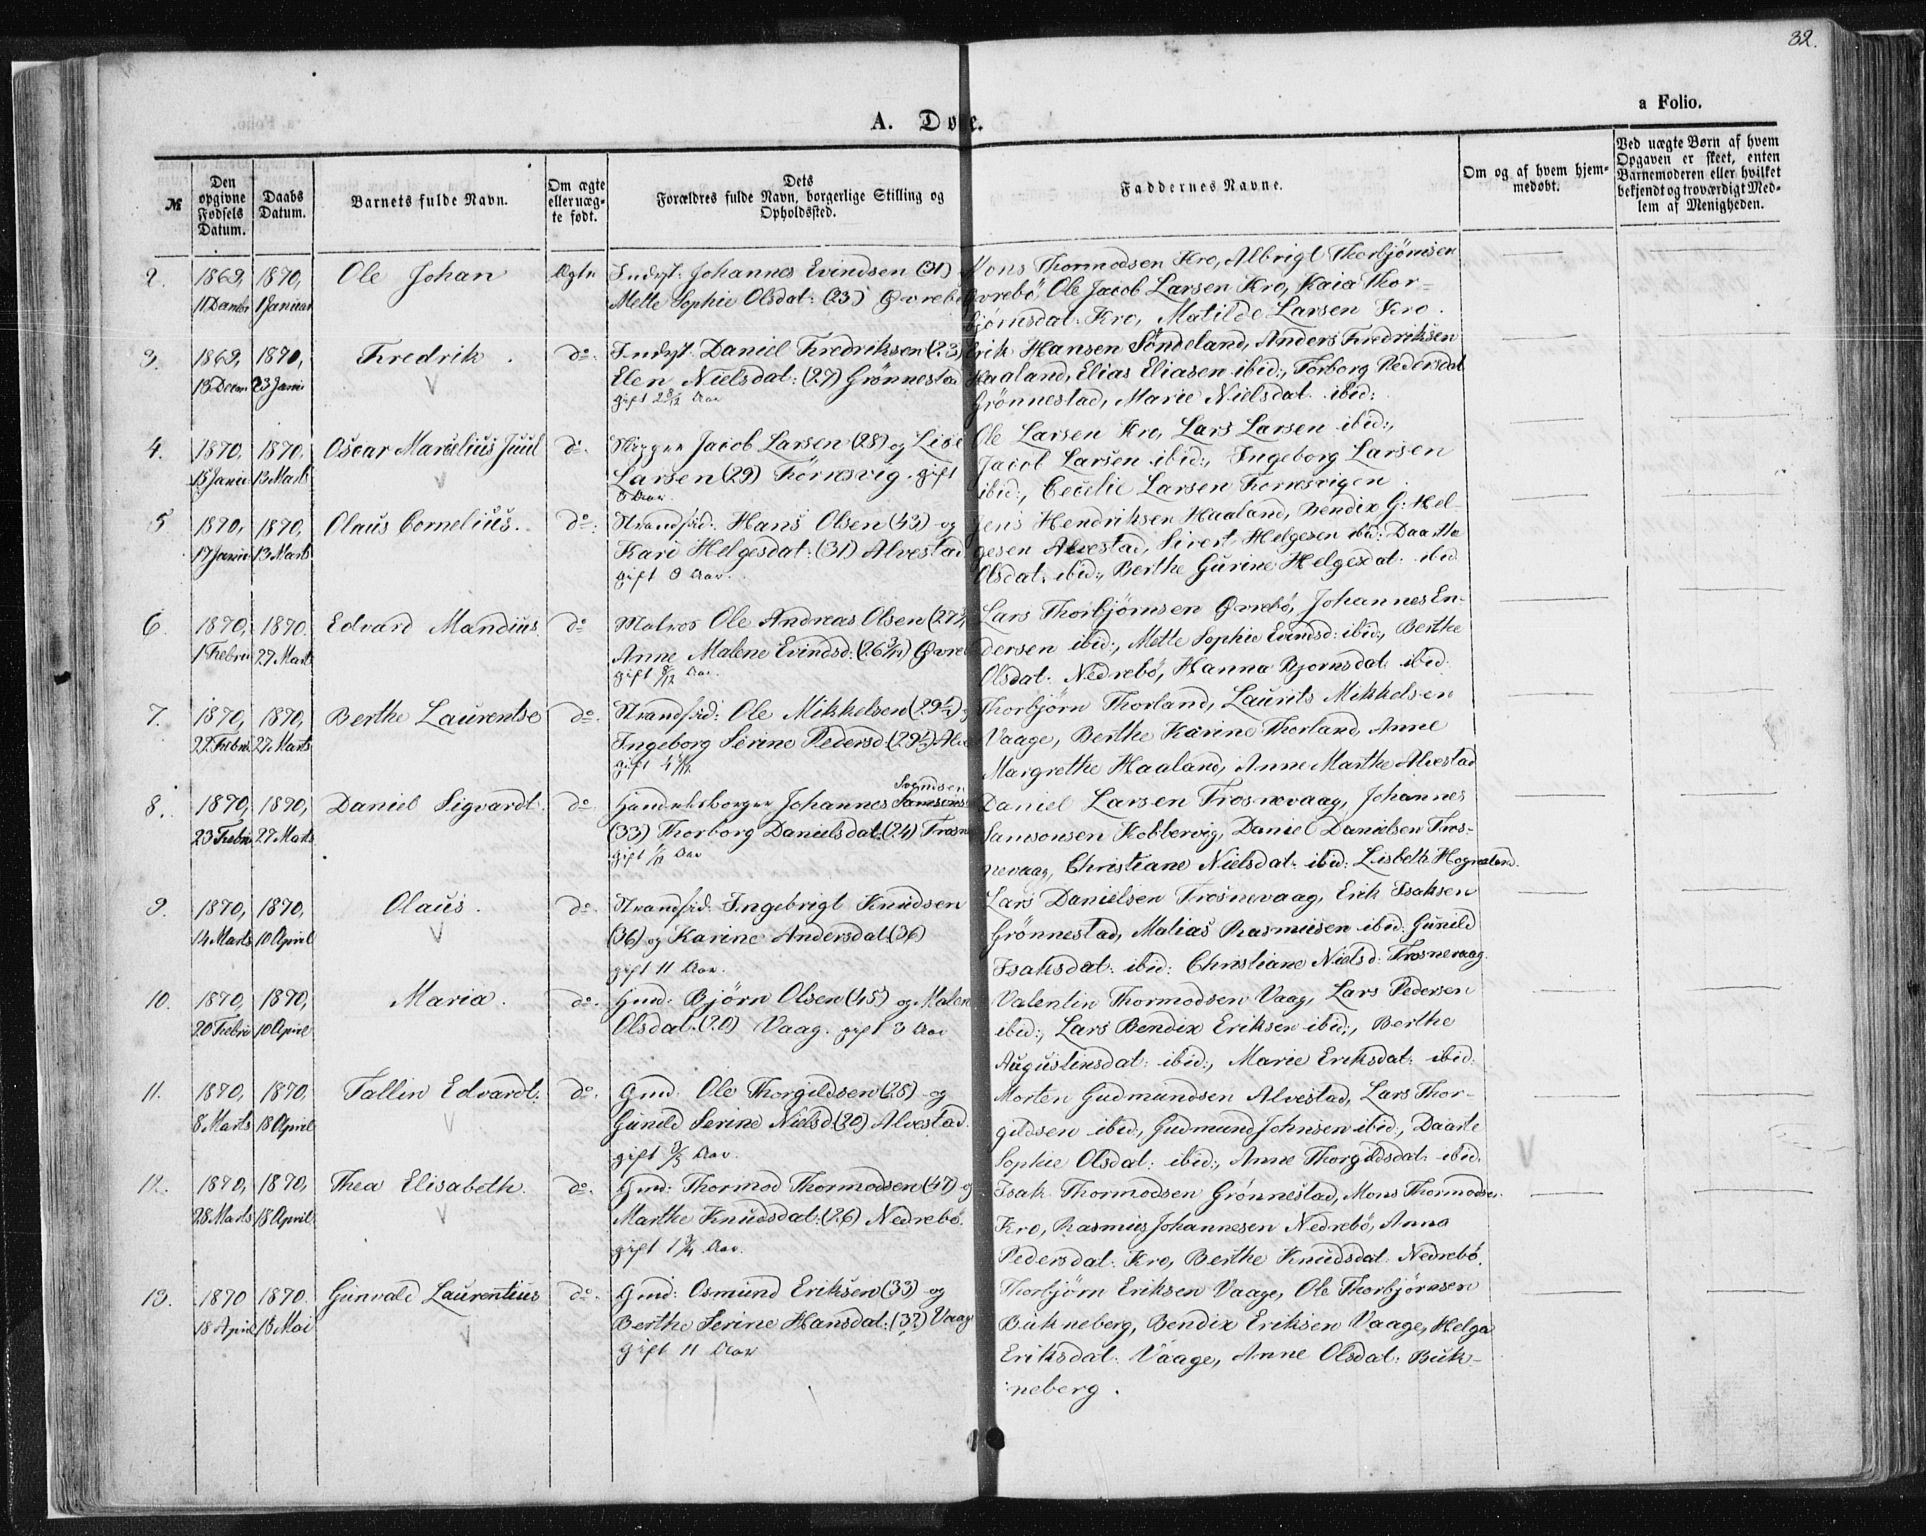 32.
a Folio.
A. Døbte.
№
Den opgivne Fødsels Datum.
Daabs Datum.
Barnets fulde Navn.
Om ægte eller uægte født.
Dets Forældres fulde Navn, borgerlige Stilling og Opholdssted.
Faddernes Navne.
Om og af hvem hjemmedøbt.
Ved uægte Børn af hvem Opgaven er skeet, enten Barnemoderen eller hvilket bekjendt og troværdigt Medlem af Menigheden.
2. 1869, 1870, Ole Johan Ægte Indst: Johannes Evindsen (31) Mons Thormodsen Kro, Albrigt Thorbjörnsen
11 Decembr 1 Januar Mette Sophie Olsdat: (23) Øvrebö Øvrebö, Ole Jacob Larsen Kro, Kaia Thor-
bjørnsdat: Kro, Matilde Larsen Kro.
3. 1869, 1870, Fredrik. do. Indst: Daniel Fredriksen (23) Erik Hansen Söndeland, Anders Fredriksen
13 Decem 23 Janu Elen Nielsdat: (27) Grönnestad Haaland, Elias Eliasen ibid:, Torborg Pedersdat
gift 2 Aar Grönnestad, Marie Nielsdat ibid:
4. 1870, 1870, Oscar Marselius Juul do. Skipper Jacob Larsen (28) og Lise Ole Larsen Kro, Lars Larsen ibid:,
15 Janu 13 Marts Larsen (29) Förresvig. gift Jacob Larsen ibid:, Ingeborg Larsen
Aar. ibid:, Cecilie Larsen Förresvigen.
5 1870, 1870, Olaus Cornelius. do. Strandsid: Hans Olsen (43) og Jens Hendriksen Haaland, Bendix G: Hel-
17 Janu 13 Marts Kari Helgesdat: (31) Alvestad gesen Alvestad, Sivert Helgesen ibid: Daarthe
gift 8 Aar. Olsdat: ibid:, Berthe Gurine Helgesdat: ibid
6. 1870, 1870. Edvard Mandius do Matros Ole Andreas Olsen (27 Lars Thorbjörnsen Øvrebö, Johannes En-
1 Febru 27 Marts Anne Malene Evindsd: (26 3/4) Øvre dersen ibid:, Mette Sophie Evindsd: ibid:, Berthe
gift 8/12 Aar. Olsdat: Nedrebö, Hanna Bjornsdat: ibid:
7. 1870, 1870, Berthe Laurentse do. Strandsid: Ole Mikkelsen (29 1/2) Thorbjörn Thorland, Laurits Mikkelsen
22 Febru 27 Marts Ingeborg Serine Pedersd: (29 1/2) Alve Vaage, Berthe Karine Thorland, Anne
gift 4 Margrethe Haaland, Anne Marthe Alvestad
8. 1870, 1870, Daniel Sigvardt. do. Handelsborger Johannes Samsons Daniel Larsen Trosnevaag, Johannes
23 Febru 27 Marts (33) Thorborg Danielsdat: (24) Trosne Samsonsen Kobbervig, Daniel Danielsen Tros-
gift Aar nevaag, Christiane Nielsdat: ibid: Lisbeth
9. 1870, 1870, Olaus. do. Strandsid: Ingebrigt Knudsen Lars Danielsen Trosnevaag, Erik Isaksen
14 Marts 10 April (36) og Karine Andersdat. (36) Grönnestad, Matias Rasmusen ibid: Gunild
gift 11 Aar. Isaksdat: ibid: Christiane Nielsd: Trosnevaag.
10. 1870, 1870, Maria. do. Gmd: Björn Olsen (45) og Malen Valentin Thormodsen Vaag, Lars Pedersen
20 Febru 10 April Olsdal. (20) Vaag. gift 3 Aar ibid:, Lars Bendix Eriksen ibid:, Berthe
Augustinsdat: ibid:, Marie Eriksdat: ibid:
11. 1870, 1870. Tallin Edvardt. do. Gmd: Ole Thorgildsen (25) og Morten Gudmundsen Alvestad, Lars Thor-
8 Marts 18 April Gunild Serine Nielsd (20) Alvestad. gildsen ibid:, Gudmund Johnsen ibid:, Daarte
gift Aar. Sophie Olsdat: ibid:, Anne Thorgildsdat: ibid.
12. 1870, 1870, Thea Elisabeth. do. Gmd: Thormod Thormodsen (47) og Isak Thormodsen Grönnestad, Mons Thormodsen
28 Marts 18 April Marthe Knudsdat: (26) Nedrebö. Kro, Rasmus Johannesen Nedrebö, Anna
gift 1 3/4 Aar. Pedersdat: Kro, Berthe Knudsdat Nedrebö.
13. 1870 1870. Gunvald Laurentius do. Gmd: Osmund Eriksen (33) og Thorbjørn Eriksen Vaage, Ole Thorbjørnsen
18 April 18 Mai Berthe Serine Hansdat: (32) Vaag Bukneberg, Bendix Eriksen Vaage, Helga
gift 11 Aar Eriksdat: Vaage, Anne Olsdat: Buk-
neberg.